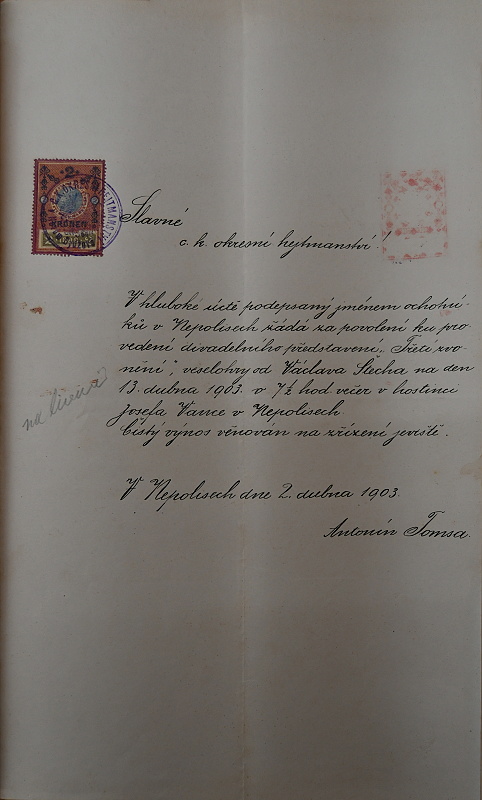 Slavné
c. k. okresní hejtmanství!
V hluboké úctě podepsaný jménem ochotní-
ků v Nepolisech žádá za povolení ku pro-
vedení divadelního představení „Třetí zvo-
nění", veselohry od Václava Štecha na den
13. dubna 1903 o 7½ hod večer v hostinci
Josefa Vavice v Nepolisech.
Čistý výnos věnován na zřízení jeviště.
V Nepolisech dne 2. dubna 1903.
Antonín Tomsa.